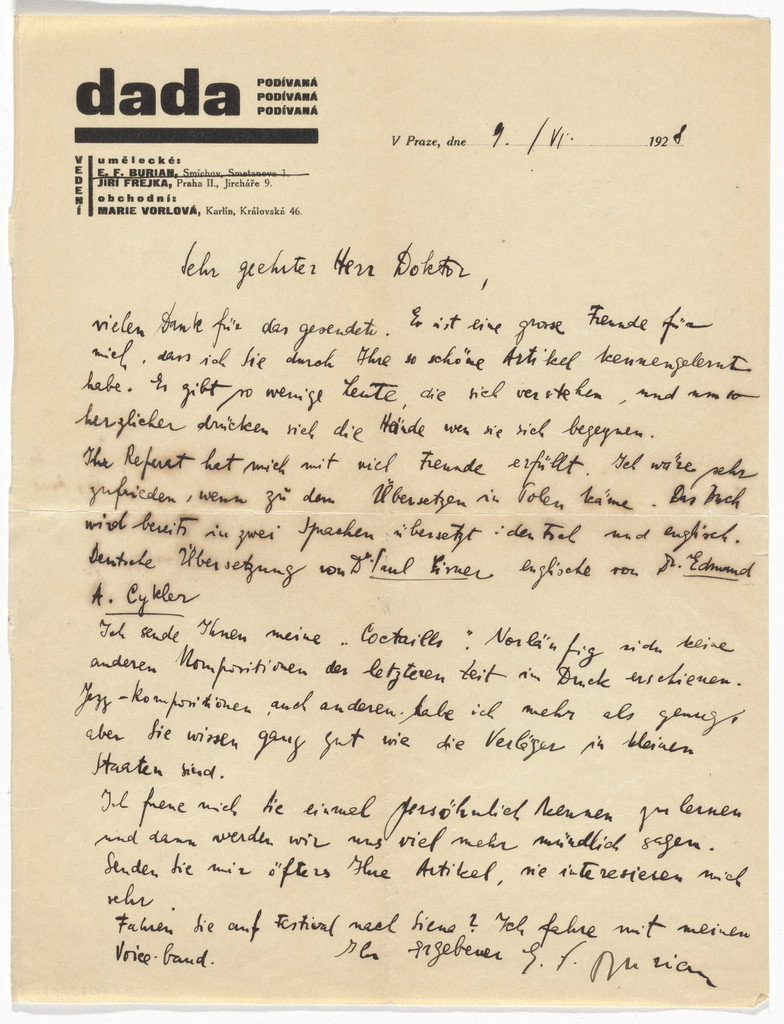 dada PODÍVANÁ
PODÍVANÁ
PODÍVANÁ
V Praze, dne 9. / VI. 1928
VEDENÍ
umělecké:
E. F. BURIAN, Smíchov, Smetanova 1.
JIŘÍ FREJKA, Praha II., Jircháře 9.
obchodní:
MARIE VORLOVÁ, Karlín, Královská 46.
Sehr geehrter Herr Doktor,
vielen Dank für das gesendete. Es ist eine grosse Freude für
mich, dass ich Sie durch Ihre so schöne Artikel kennengelernt
habe. Es gibt so wenige Leute, die sich verstehen, und um so
herzlicher drücken sich die Hände wen sie sich begegnen.
Ihr Referat hat mich mit viel Freude erfüllt. Ich wäre sehr
zufrieden, wenn zu dem Übersetzen in Polen käme. Das Buch
wird bereits in zwei Sprachen übersetzt: deutsch und englisch.
Deutsche Übersetzung von Dr. Paul Eisner englische von Dr. Edmund
A. Cykler
Ich sende Ihnen meine „Coctaills". Vorläufig sidn keine
anderen Kompositionen der letzteren Zeit im Druck erschienen.
Jazz-kompositionen, auch anderen, habe ich mehr als genug,
aber Sie wissen ganz gut wie die Verläger in kleinen
Staaten sind.
Ich freue mich Sie einmal persöhnlich kennen zu lernen
und dann werden wir uns viel mehr mündlich sagen.
Senden Sie mir öfters Ihre Artikel, sie interesieren mich
sehr.
Fahren Sie auf Festival nach Siena? Ich fahre mit meinen
Voice-band. Ihr ergebener E. F. Burian